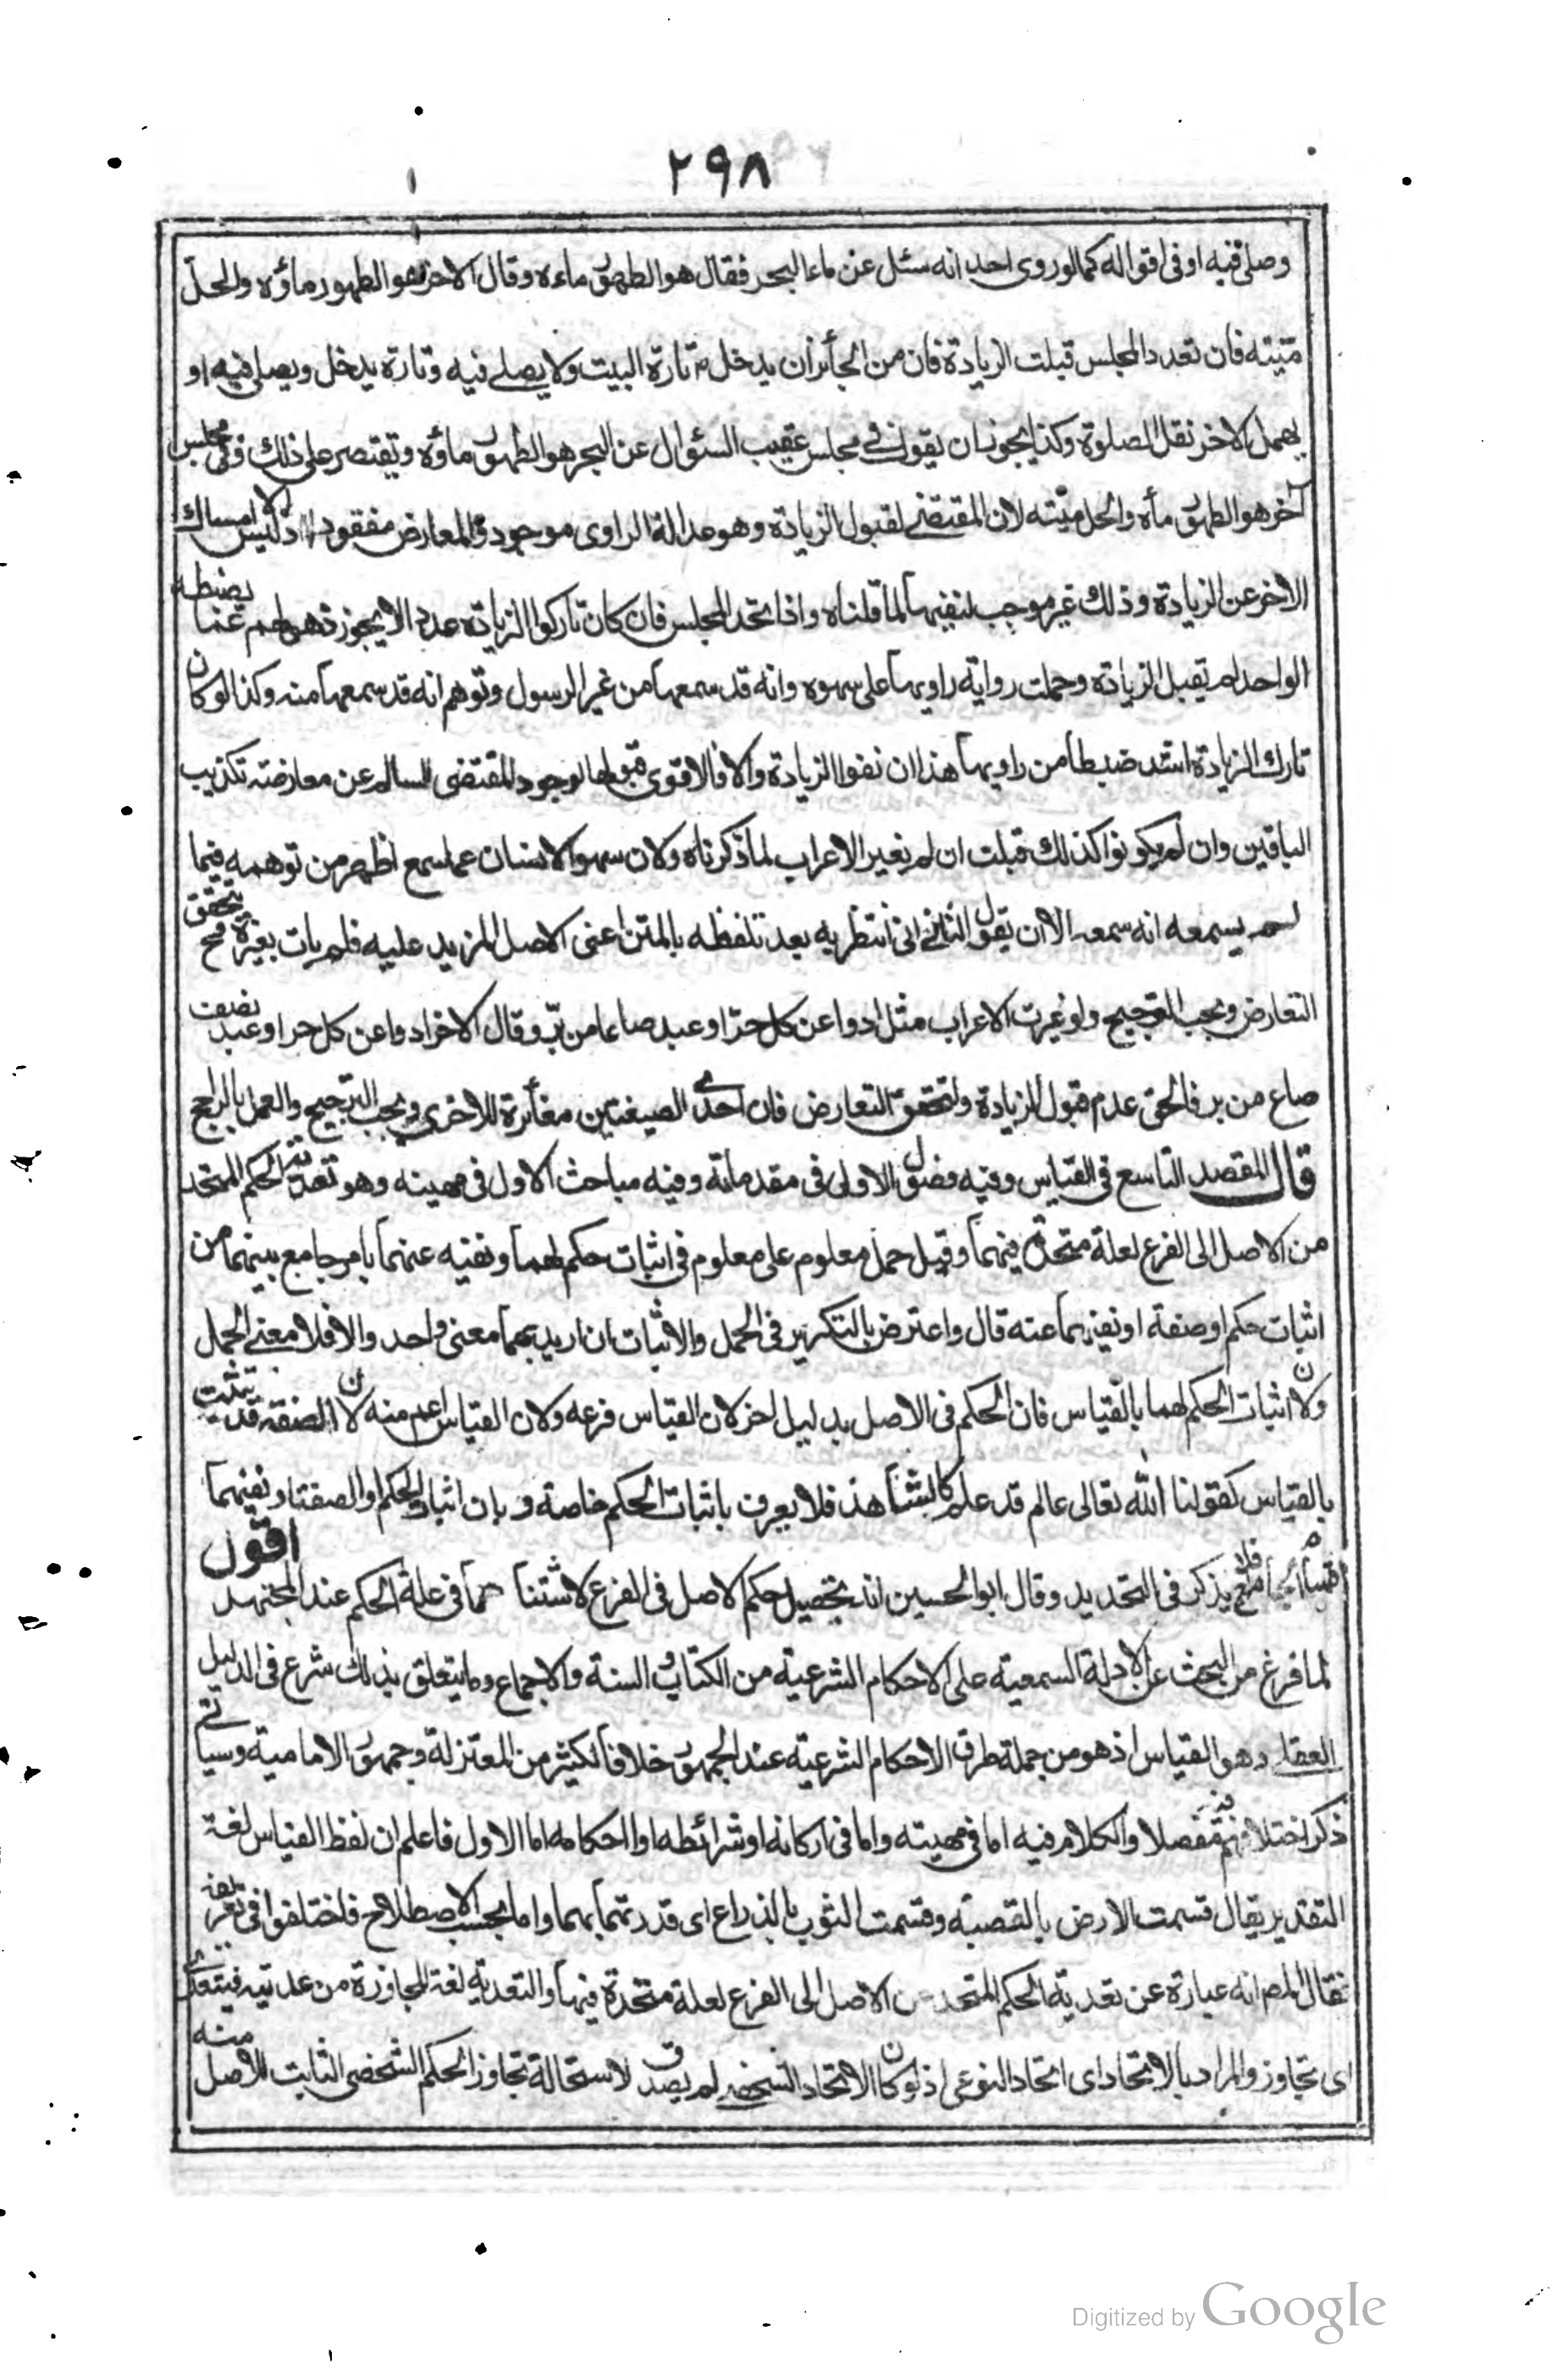 ٢٩٨
وصلى فيه او فى اقواله كما لو روى احد انه سئل عن ماء البحر فقال هو الطهور ماءه وقال الاخر هو الطهور ماؤه والحل
ميتته فان تعدد المجلس قبلت الزيادة فان من الجائز ان يدخل تارة البيت ولا يصلى فيه وتارة يدخل ويصلى فيه او
يهمل الاخر نقل الصلوة وكذا يجوز ان يقول فى مجلس عقيب السئوال عن البحر هو الطهور ماؤه ويقتصر على ذلك وفى مجلس
آخر هو الطهور مأه والحل ميّته لان المقتضى لقبول الزيادة وهو عدالة الراوى موجود والمعارض مفقود اذ ليس الا امساك
الاخر عن الزيادة وذلك غير موجب لنفيها لما قلناه واذا اتحد المجلس فان كان تاركوا الزيادة عددا لا يجوز ذهولهم عما يضبطه
الواحد لم يقبل الزيادة وحملت رواية راويها على سهوه وانه قد سمعها من غير الرسول وتوهم انه قد سمعها منه وكذا لو كان
تارك الزيادة اشد ضبطا من راويها هذا ان نفوا الزيادة والا فالاقوى قبولها لوجود المقتضى السالم عن معارضته تكذيب
الباقين وان لم يكونوا كذلك قبلت ان لم يغير الاعراب لما ذكرناه ولان سهو الانسان عما سمع اظهر من توهمه فيما
لم يسمعه انه سمعه الا ان يقول الثانى انى انتظر به بعد تلفظه بالمتن اعنى الاصل المزيد عليه فلم يات بغيره فح يتحقق
التعارض ويجب الترجيح ولو غيرت الاعراب مثل ادوا عن كل حرّ او عبد صاعا من برّ وقال الاخر ادوا عن كل حر او عبد نصف
صاع من بر فالحق عدم قبول الزيادة ولتحقق التعارض فان احدى الصيغتين مغائرة للاخرى ويجب الترجيح والعمل بالراجح
قال المقصد التاسع فى القياس وفيه فصول الاولى فى مقدماته وفيه مباحث الاول فى مهيته وهو تعدية الحكم المتحد
من الاصل الى الفرع لعلة متحدة فيهما وقيل حمل معلوم على معلوم فى اثبات حكم لهما ونفيه عنهما بامر جامع بينهما من
اثبات حكم او صفة او نفيهما عنه قال واعترض بالتكرير فى الحمل والاثبات ان اريد بهما معنى واحد والا فلا معنى للحمل
ولان اثبات الحكم لهما بالقياس فان الحكم فى الاصل بدليل اخر لان القياس فرعه ولان القياس اعم منه لان الصفة قد يثبت
بالقياس كقولنا الله تعالى عالم قد علم كالشاهد فلا يعرف باثبات الحكم خاصة و بان اثبات الحكم او الصفة او نفيهما
فلا يذكر فى التحديد وقال ابو الحسين انه تحصيل حكم الاصل فى الفرع لاشتباههما فى علة الحكم عند المجتهد اقول
لما فرغ من البحث عن الادلة السمعية على الاحكام الشرعية من الكتاب والسنة والاجماع وما يتعلق بذلك شرع فى الدليل
العقلى وهو القياس اذ هو من جملة طرق الاحكام الشرعية عند الجمهور خلافا لكثير من المعتزلة وجمهور الامامية وسياتى
ذكر اختلافهم فيه مفصلا والكلام فيه اما فى مهيته واما فى اركانه او شرائطه او احكامه اما الاول فاعلم ان لفظ القياس لغة
التقدير يقال قست الارض بالقصبة وقست الثوب بالذراع اى قدرتهما بهما واما بحسب الاصطلاح فاختلفوا فى تعريفه
فقال المص انه عبارة عن تعدية الحكم المتحد من الاصل الى الفرع لعلة متحدة فيهما والتعدية لغة المجاوزة من عديته فتعدى
اى تجاوز والمراد بالاتحاد اى اتحاد النوعى اذ لو كان الاتحاد الشخصى لم يصدق لاستحالة تجاوز الحكم الشخصى الثابت للاصل منه
Digitized by Google